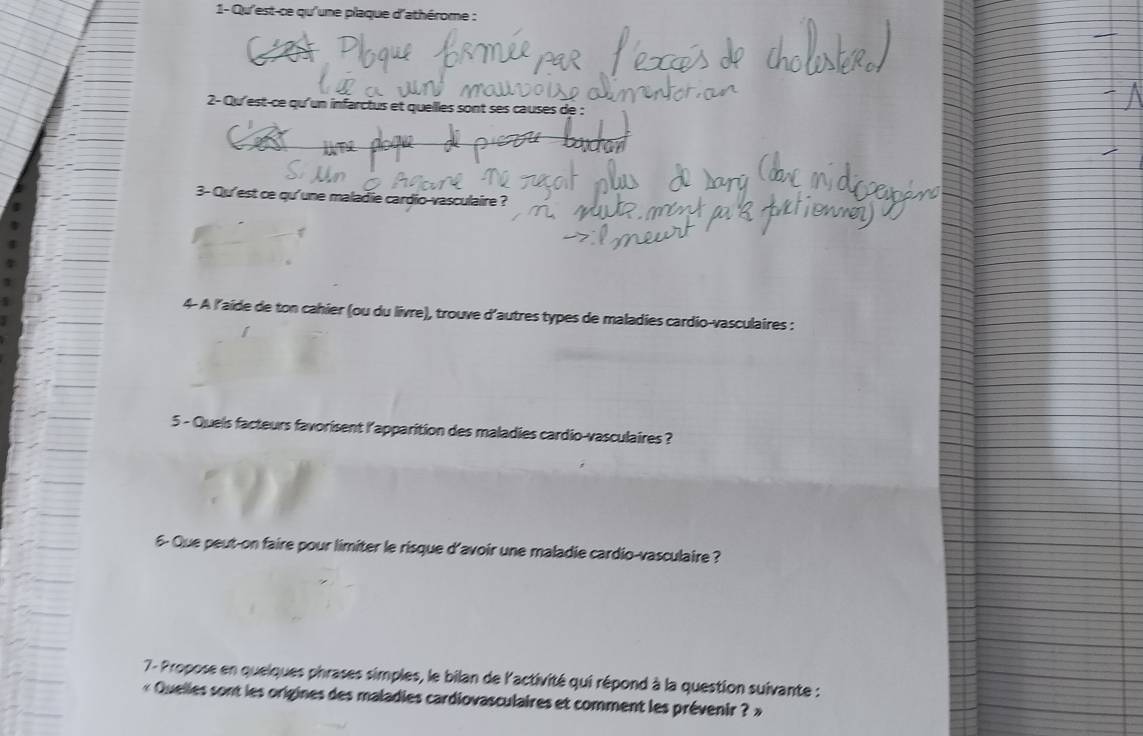 1- Qu'est-ce qu'une plaque d'athérome :
C'est Plaque formée par l'excès de cholesterol
liée a une mauvaise alimentation
2- Qu'est-ce qu'un infarctus et quelles sont ses causes de :
C'est une plaque de
Si un organe ne reçoit plus de sang (donc ni dioxygène
3- Qu'est ce qu'une maladie cardio-vasculaire ?
, ni nutriment pour fonctionner)
→ il meurt
4- A l'aide de ton cahier (ou du livre), trouve d'autres types de maladies cardio-vasculaires :
5 - Quels facteurs favorisent l'apparition des maladies cardio-vasculaires ?
6- Que peut-on faire pour limiter le risque d'avoir une maladie cardio-vasculaire ?
7- Propose en quelques phrases simples, le bilan de l'activité qui répond à la question suivante :
« Quelles sont les origines des maladies cardiovasculaires et comment les prévenir ? »